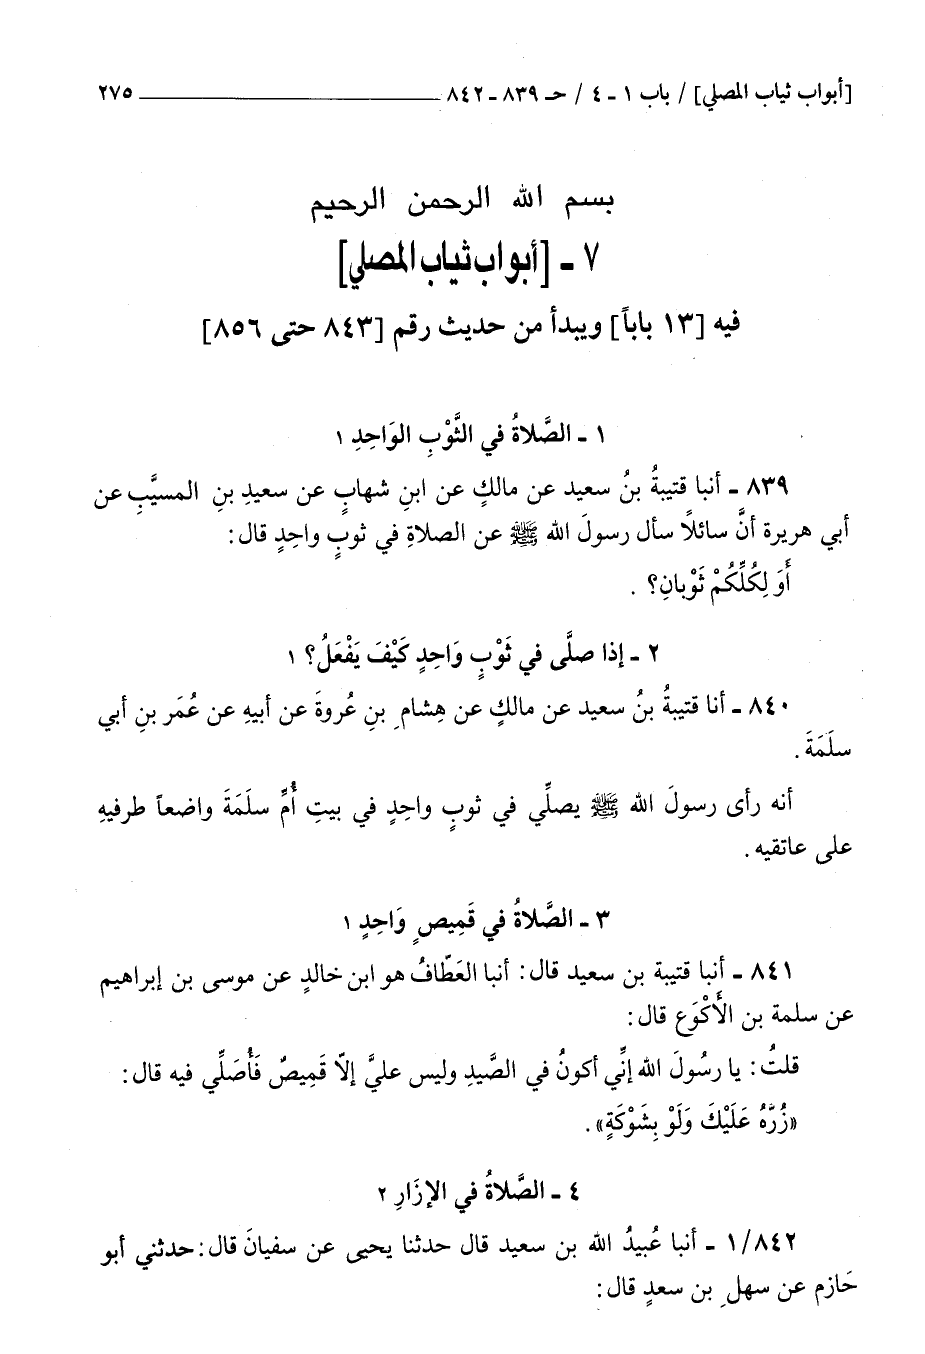 [أبواب ثياب المصلي] / باب ١ - ٤ / حـ ٨٣٩ - ٨٤٢ ٢٧٥
بسم الله الرحمن الرحيم
٧ - [أبواب ثياب المصلي]
فيه [١٣ باباً] ويبدأ من حديث رقم [٨٤٣ حتى ٨٥٦]
١ - الصَّلاةُ في الثَّوْبِ الوَاحِدِ ١
٨٣٩ - أنبا قتيبةُ بنُ سعيد عن مالكٍ عن ابنِ شهابٍ عن سعيدِ بنِ المسيَّبِ عن
أبي هريرة أنَّ سائلاً سأل رسولَ الله ﷺ عن الصلاةِ في ثوبٍ واحِدٍ قال:
أَوَ لِكُلِّكُمْ ثَوْبانِ؟ .
٢ - إذا صلَّى في ثَوْبٍ وَاحِدٍ كَيْفَ يَفْعَلُ؟ ١
٨٤٠ - أنا قتيبةُ بنُ سعيد عن مالكٍ عن هِشامِ بنِ عُروةَ عن أبيهِ عن عُمَر بنِ أبي
سلَمَةَ .
أنه رأى رسولَ الله ﷺ يصلِّي في ثوبٍ واحِدٍ في بيتِ أُمِّ سلَمَةَ واضعاً طرفيهِ
على عاتقيه .
٣ - الصَّلاةُ في قَمِيصٍ وَاحِدٍ ١
٨٤١ - أنبا قتيبة بن سعيد قال: أنبا العَطّافُ هو ابن خالدٍ عن موسى بن إبراهيم
عن سلمة بن الأَكْوَعِ قال:
قلتُ: يا رسُولَ الله إنِّي أكونُ في الصَّيدِ وليس عليَّ إلاّ قَمِيصٌ فَأُصَلِّي فيه قال:
«زُرَّهُ عَلَيْكَ وَلَوْ بِشَوْكَةٍ» .
٤ - الصَّلاةُ في الإزَارِ ٢
١/٨٤٢ - أنبا عُبيدُ الله بن سعيد قال حدثنا يحيى عن سفيانَ قال: حدثني أبو
حَازم عن سهلِ بن سعدٍ قال: